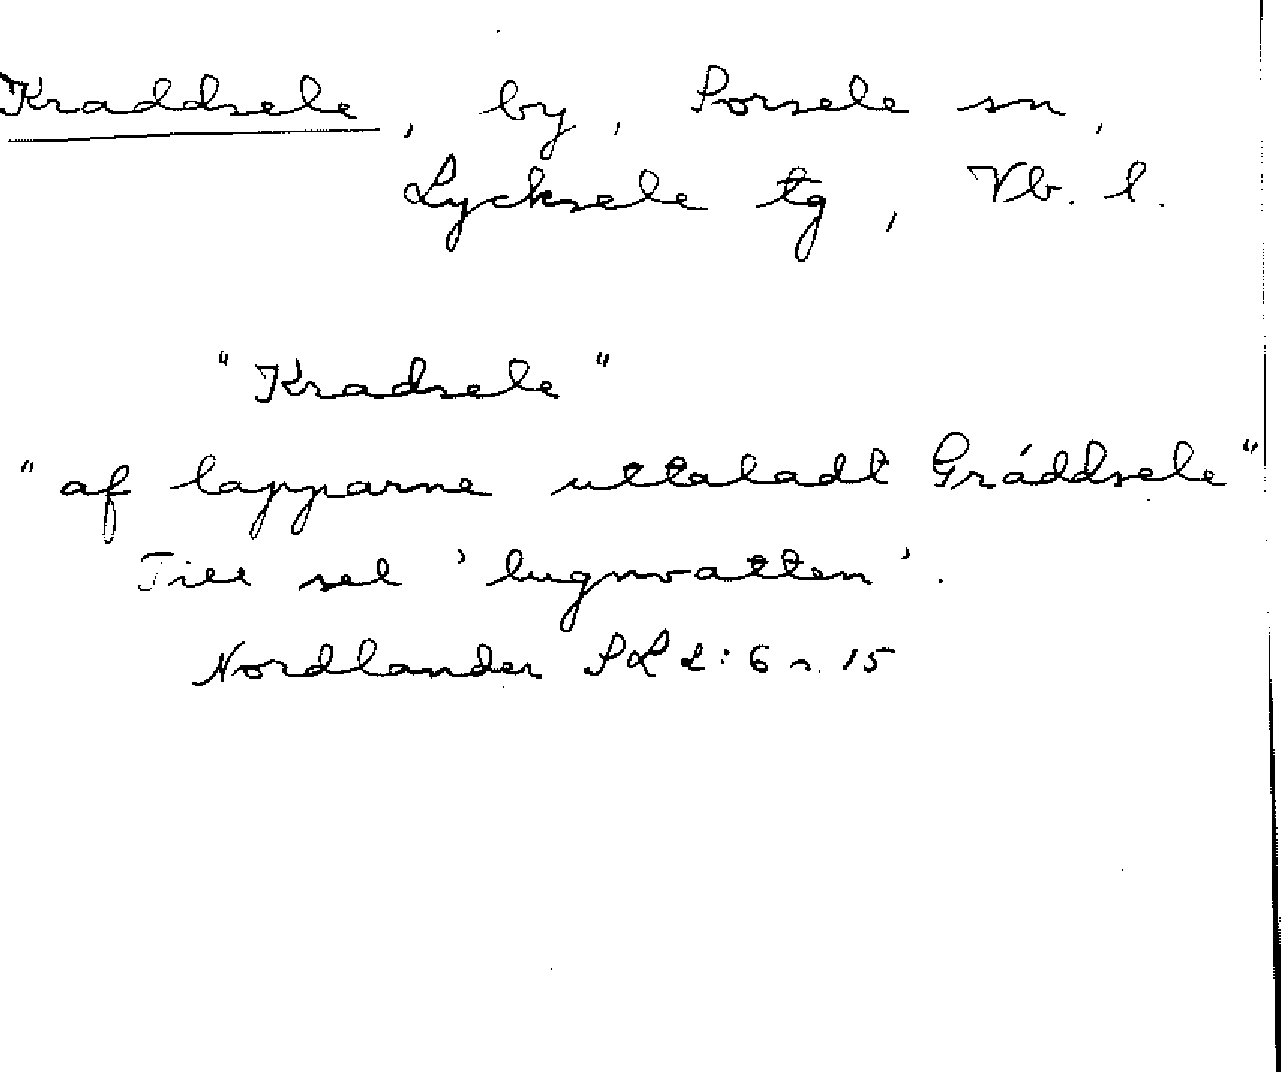 Kraddsele, by, Sorsele sn,
Lycksele tg, Vb. l.
"Kradsele"
"af lapparne uttaladt Gráddsele"
Till sel 'lugnvatten'.
Nordlander SL 2:6 s. 15